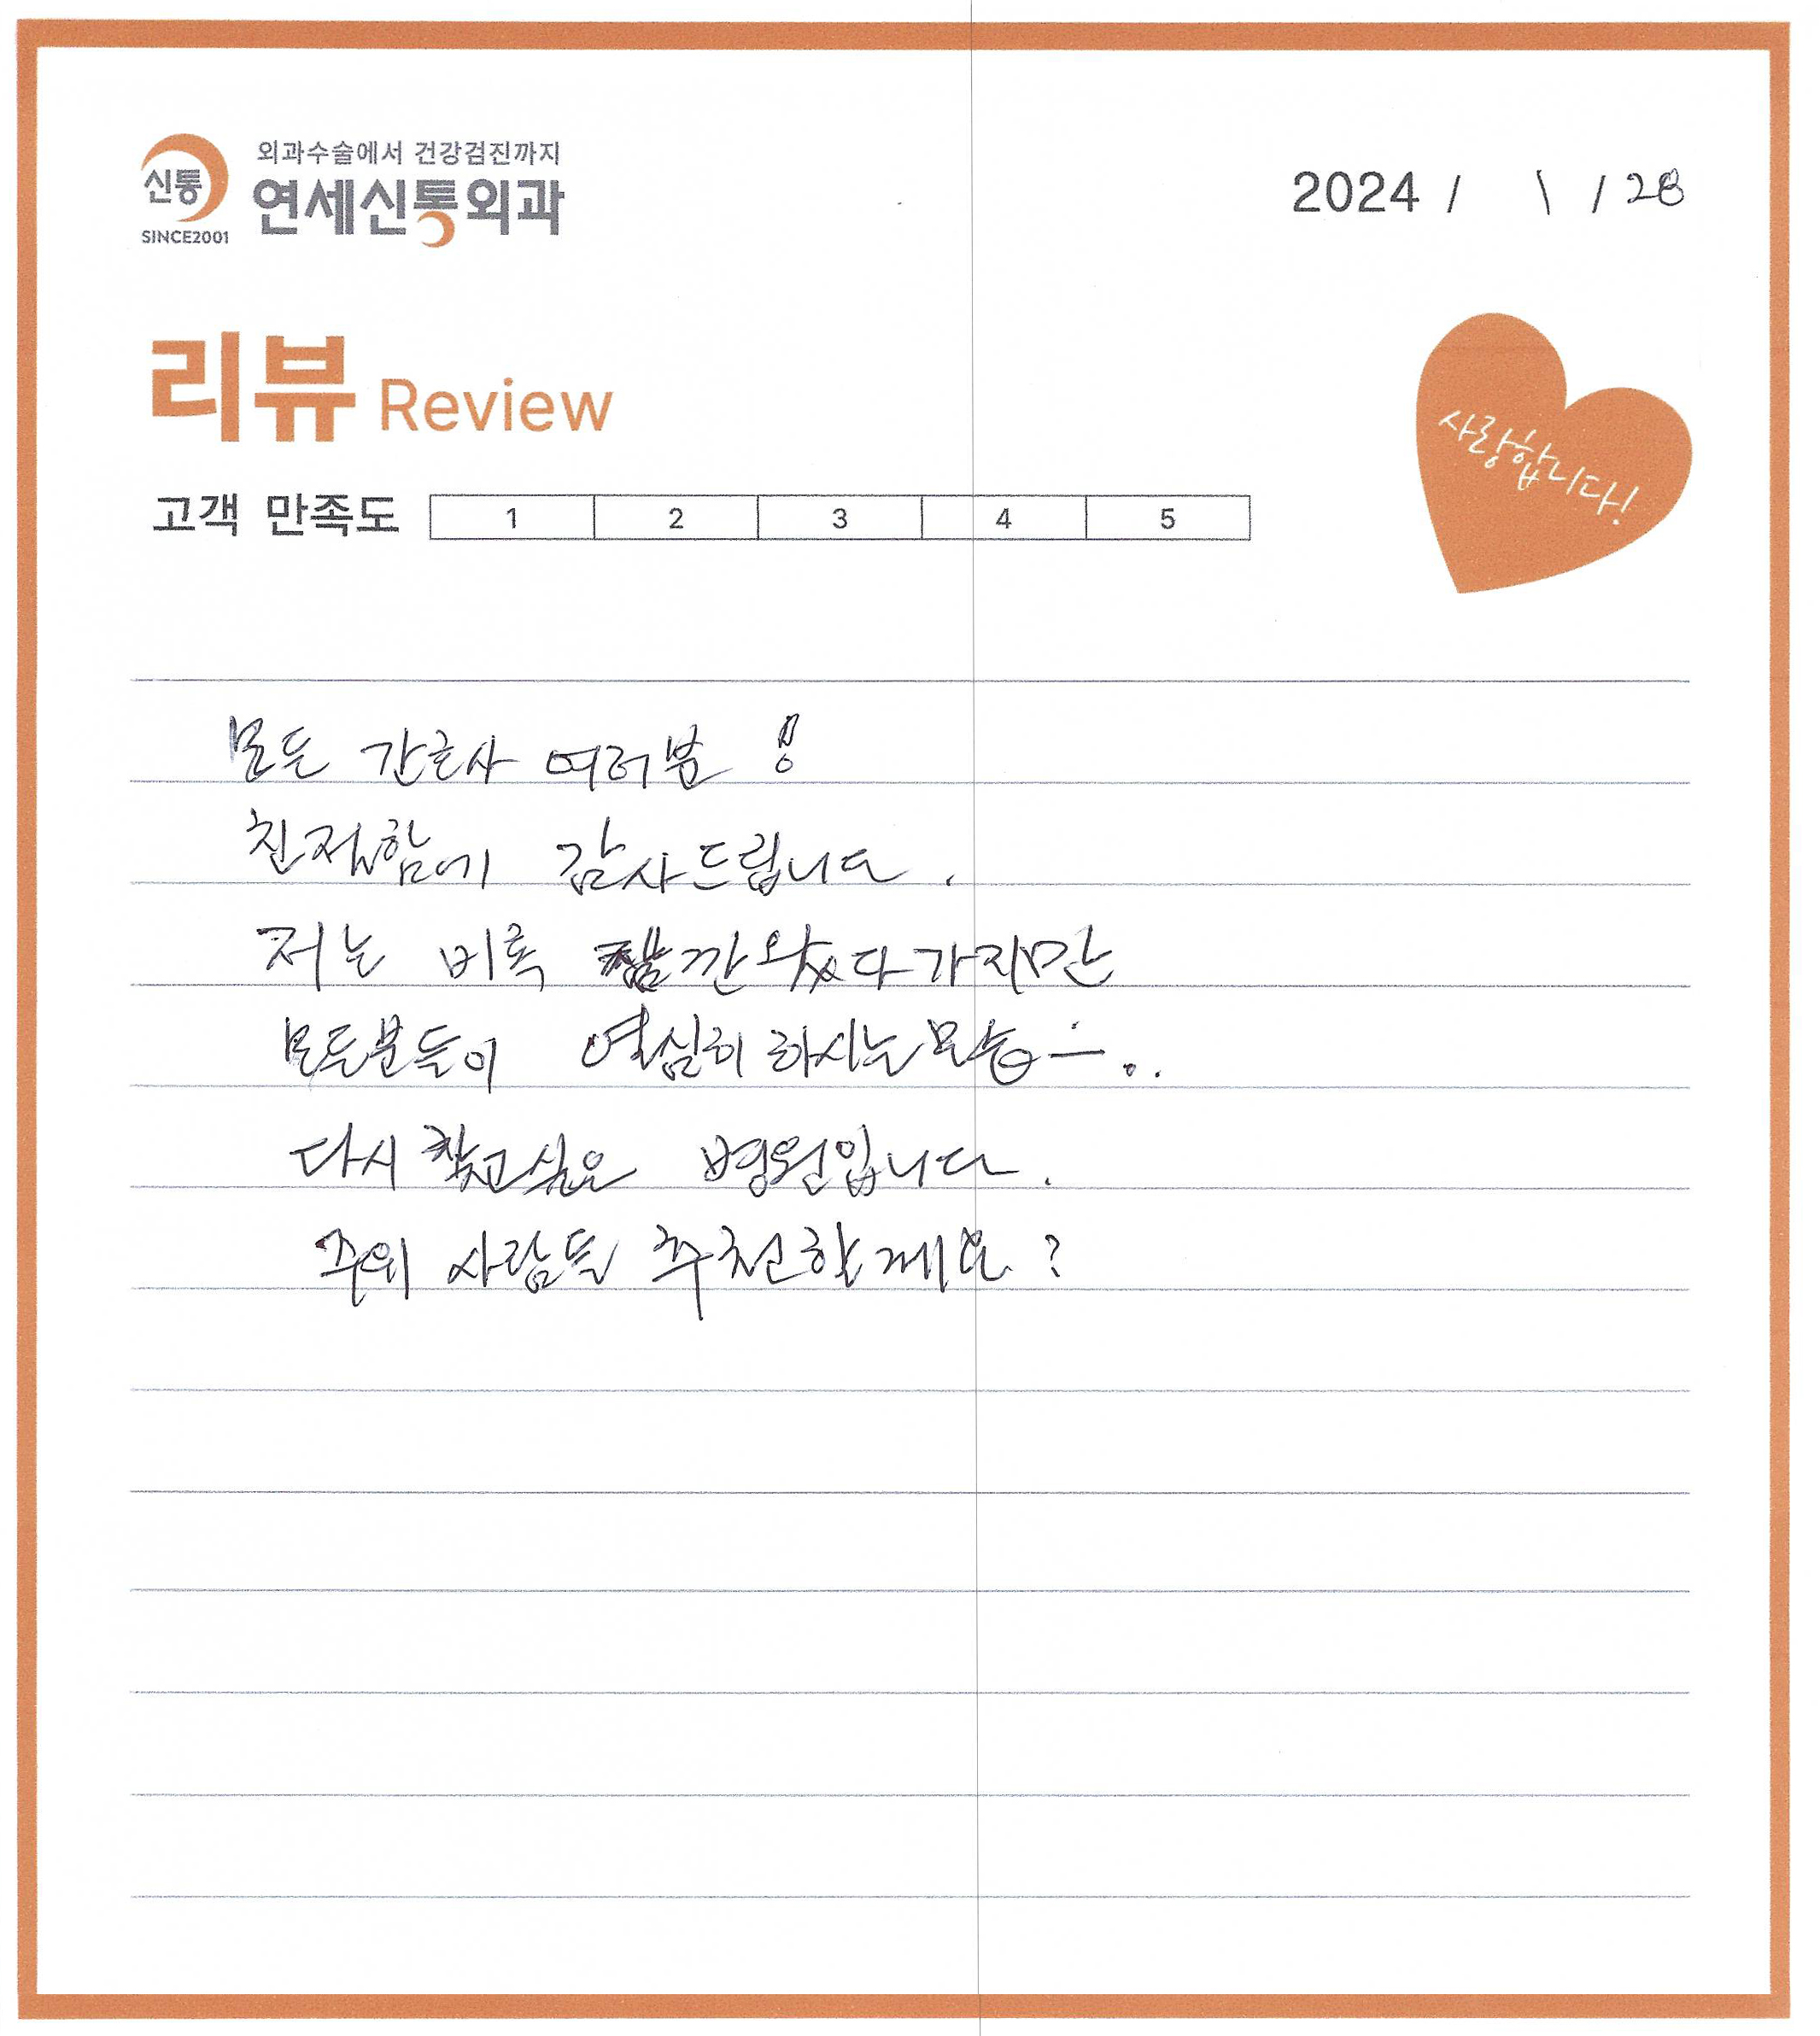 외과수술에서 건강검진까지
신통 연세신통외과
SINCE2001
2024 / 1 / 28
리뷰 Review
사랑합니다!
고객 만족도 1 2 3 4 5
모든 간호사 여러분 !
친절함에 감사드립니다.
저는 비록 잠깐 왔다 가지만
모든분들이 열심히 하시는 모습 - ..
다시 찾고싶은 병원입니다.
주위 사람들 추천할께요?